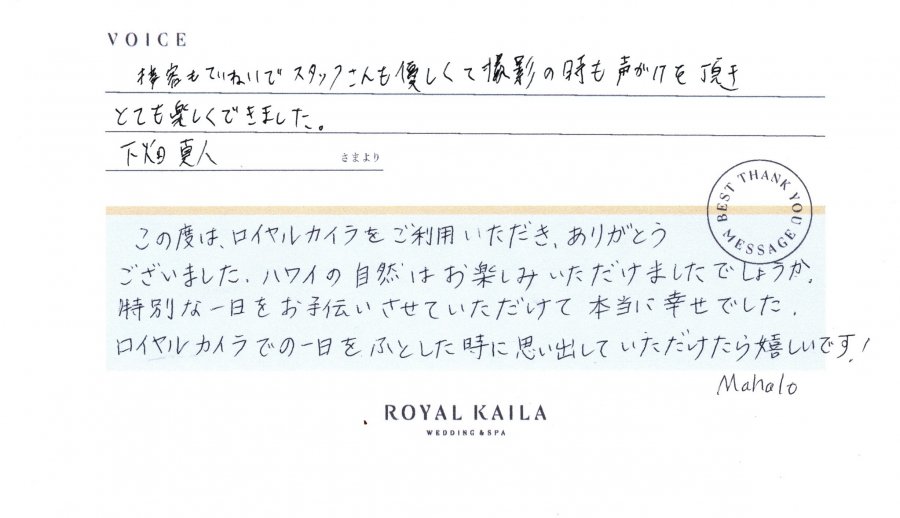 VOICE
接客もていねいでスタッフさんも優しくて撮影の時も声がけを頂き
とても楽しくできました。
下畑 真人 さまより
BEST THANK YOU MESSAGE
この度は、ロイヤルカイラをご利用いただき、ありがとう
ございました。ハワイの自然はお楽しみいただけましたでしょうか。
特別な一日をお手伝いさせていただけて本当に幸せでした。
ロイヤルカイラでの一日をふとした時に思い出していただけたら嬉しいです!
Mahalo
ROYAL KAILA
WEDDING & SPA